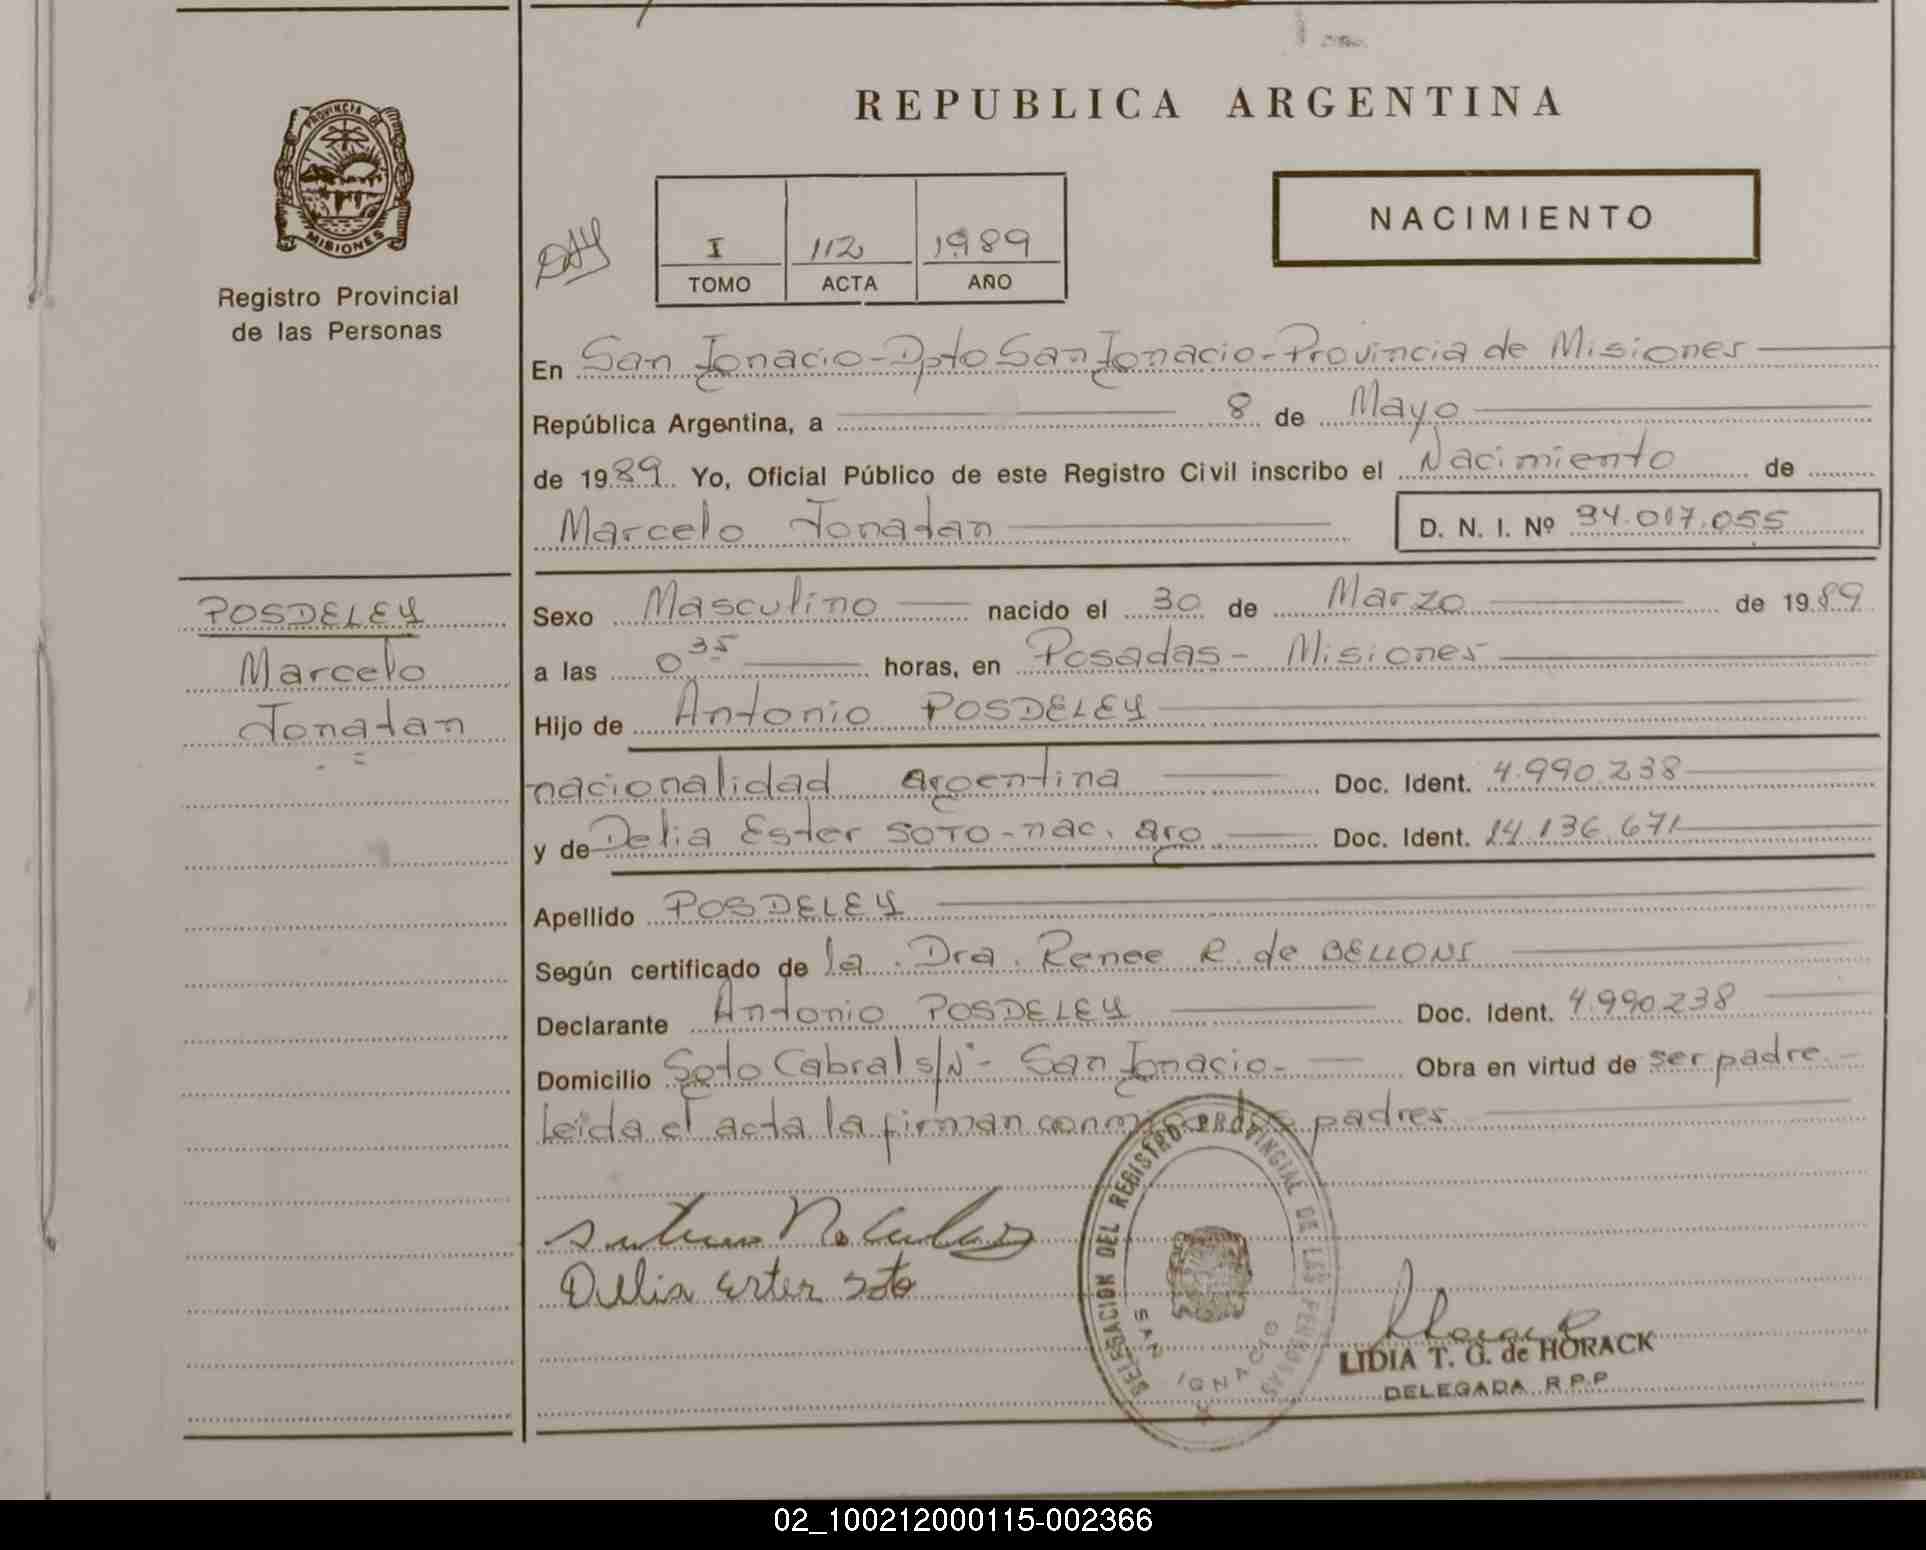 REPUBLICA ARGENTINA
PROVINCIA DE
MISIONES
Registro Provincial
de las Personas
NACIMIENTO
I 112 1989
TOMO ACTA AÑO
En San Ignacio - Dpto San Ignacio - Provincia de Misiones
República Argentina, a 8 de Mayo
de 1989 Yo, Oficial Público de este Registro Civil inscribo el Nacimiento de
Marcelo Jonatan
D. N. I. Nº 34.017.055
POSDELEY
Marcelo
Jonatan
Sexo Masculino nacido el 30 de Marzo de 1989
a las 0 35 horas, en Posadas - Misiones
Hijo de Antonio POSDELEY
nacionalidad argentina Doc. Ident. 4.990.238
y de Delia Ester SOTO - nac. arg Doc. Ident. 14.136.671
Apellido POSDELEY
Según certificado de la Dra. Renee R. de BELLONI
Declarante Antonio POSDELEY Doc. Ident. 4.990.238
Domicilio Soto Cabral s/Nº - San Ignacio - Obra en virtud de ser padre
Leida el acta la firman conmigo los padres
Delia Ester Soto
DELEGACION DEL REGISTRO PROVINCIAL DE LAS PERSONAS
SAN IGNACIO
LIDIA T. G. de HORACK
DELEGADA R.P.P
02_100212000115-002366